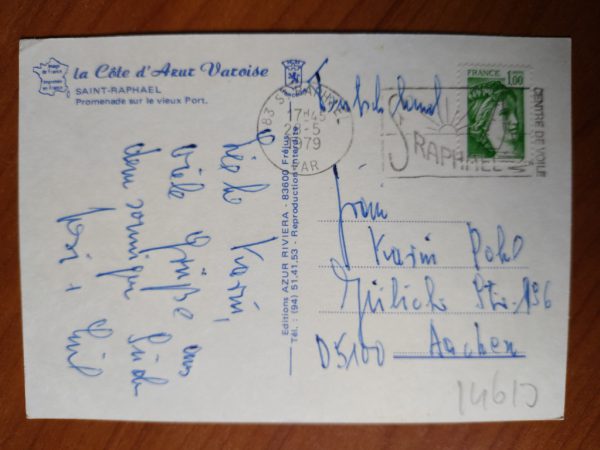 Image de France
Imprimée en France
la Côte d'Azur Varoise
SAINT-RAPHAEL
Promenade sur le vieux Port.
Karin,
viele Grüße aus
dem sonnigen Süden
Editions AZUR RIVIERA - 83600 Fréjus
Tél. : (94) 51.41.53 - Reproduction interdite
83 ST RAPHAEL
17H45
28-5
1979
VAR
FRANCE
1,00
ST RAPHAEL
CENTRE DE VOILE
Deutschland
Karin Pohl
Jülicher Str. 196
D5100 Aachen